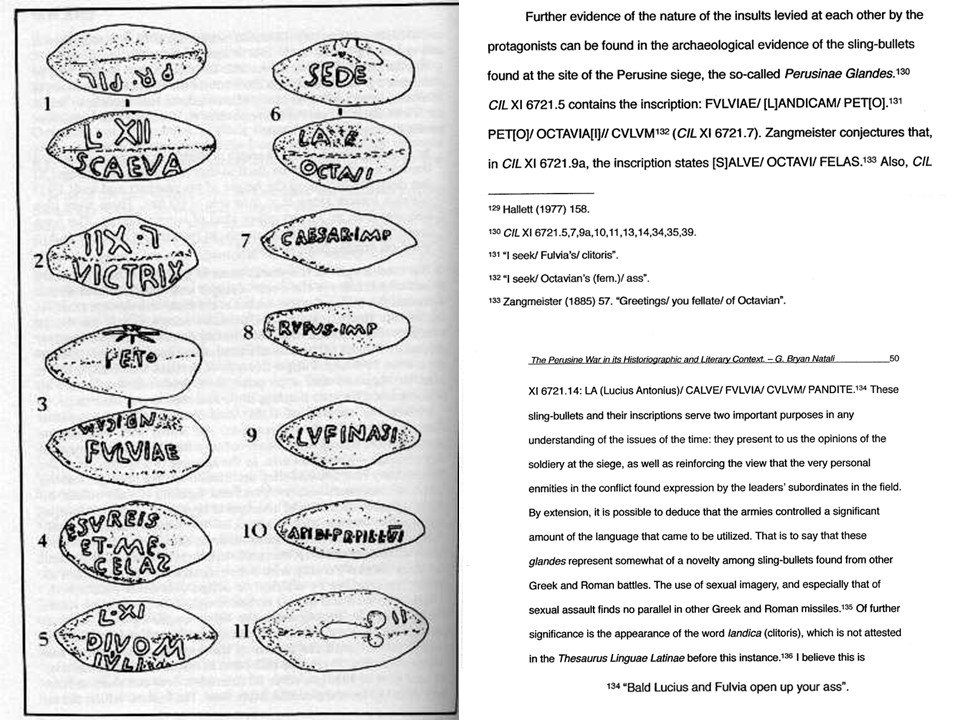 1
P.R.PIL
L·XII
SCAEVA
2
L·XII
VICTRIX
3
PETO
FVLVIAE
4
ESVREIS
ET·ME·
CELAS
5
L·XI
DIVOM
6
SEDE
LAXE
OCTAVI
7
CAESAR·IMP
8
RVFVS·IMP
9
LVFINASI
10
11
Further evidence of the nature of the insults levied at each other by the
protagonists can be found in the archaeological evidence of the sling-bullets
found at the site of the Perusine siege, the so-called Perusinae Glandes.¹³⁰
CIL XI 6721.5 contains the inscription: FVLVIAE/ [L]ANDICAM/ PET[O].¹³¹
PET[O]/ OCTAVIA[I]// CVLVM¹³² (CIL XI 6721.7). Zangmeister conjectures that,
in CIL XI 6721.9a, the inscription states [S]ALVE/ OCTAVI/ FELAS.¹³³ Also, CIL
¹²⁹ Hallett (1977) 158.
¹³⁰ CIL XI 6721.5,7,9a,10,11,13,14,34,35,39.
¹³¹ "I seek/ Fulvia's/ clitoris".
¹³² "I seek/ Octavian's (fem.)/ ass".
¹³³ Zangmeister (1885) 57. "Greetings/ you fellate/ of Octavian".
The Perusine War in its Historiographic and Literary Context. – G. Bryan Natali 50
XI 6721.14: LA (Lucius Antonius)/ CALVE/ FVLVIA/ CVLVM/ PANDITE.¹³⁴ These
sling-bullets and their inscriptions serve two important purposes in any
understanding of the issues of the time: they present to us the opinions of the
soldiery at the siege, as well as reinforcing the view that the very personal
enmities in the conflict found expression by the leaders' subordinates in the field.
By extension, it is possible to deduce that the armies controlled a significant
amount of the language that came to be utilized. That is to say that these
glandes represent somewhat of a novelty among sling-bullets found from other
Greek and Roman battles. The use of sexual imagery, and especially that of
sexual assault finds no parallel in other Greek and Roman missiles.¹³⁵ Of further
significance is the appearance of the word landica (clitoris), which is not attested
in the Thesaurus Linguae Latinae before this instance.¹³⁶ I believe this is
¹³⁴ "Bald Lucius and Fulvia open up your ass".